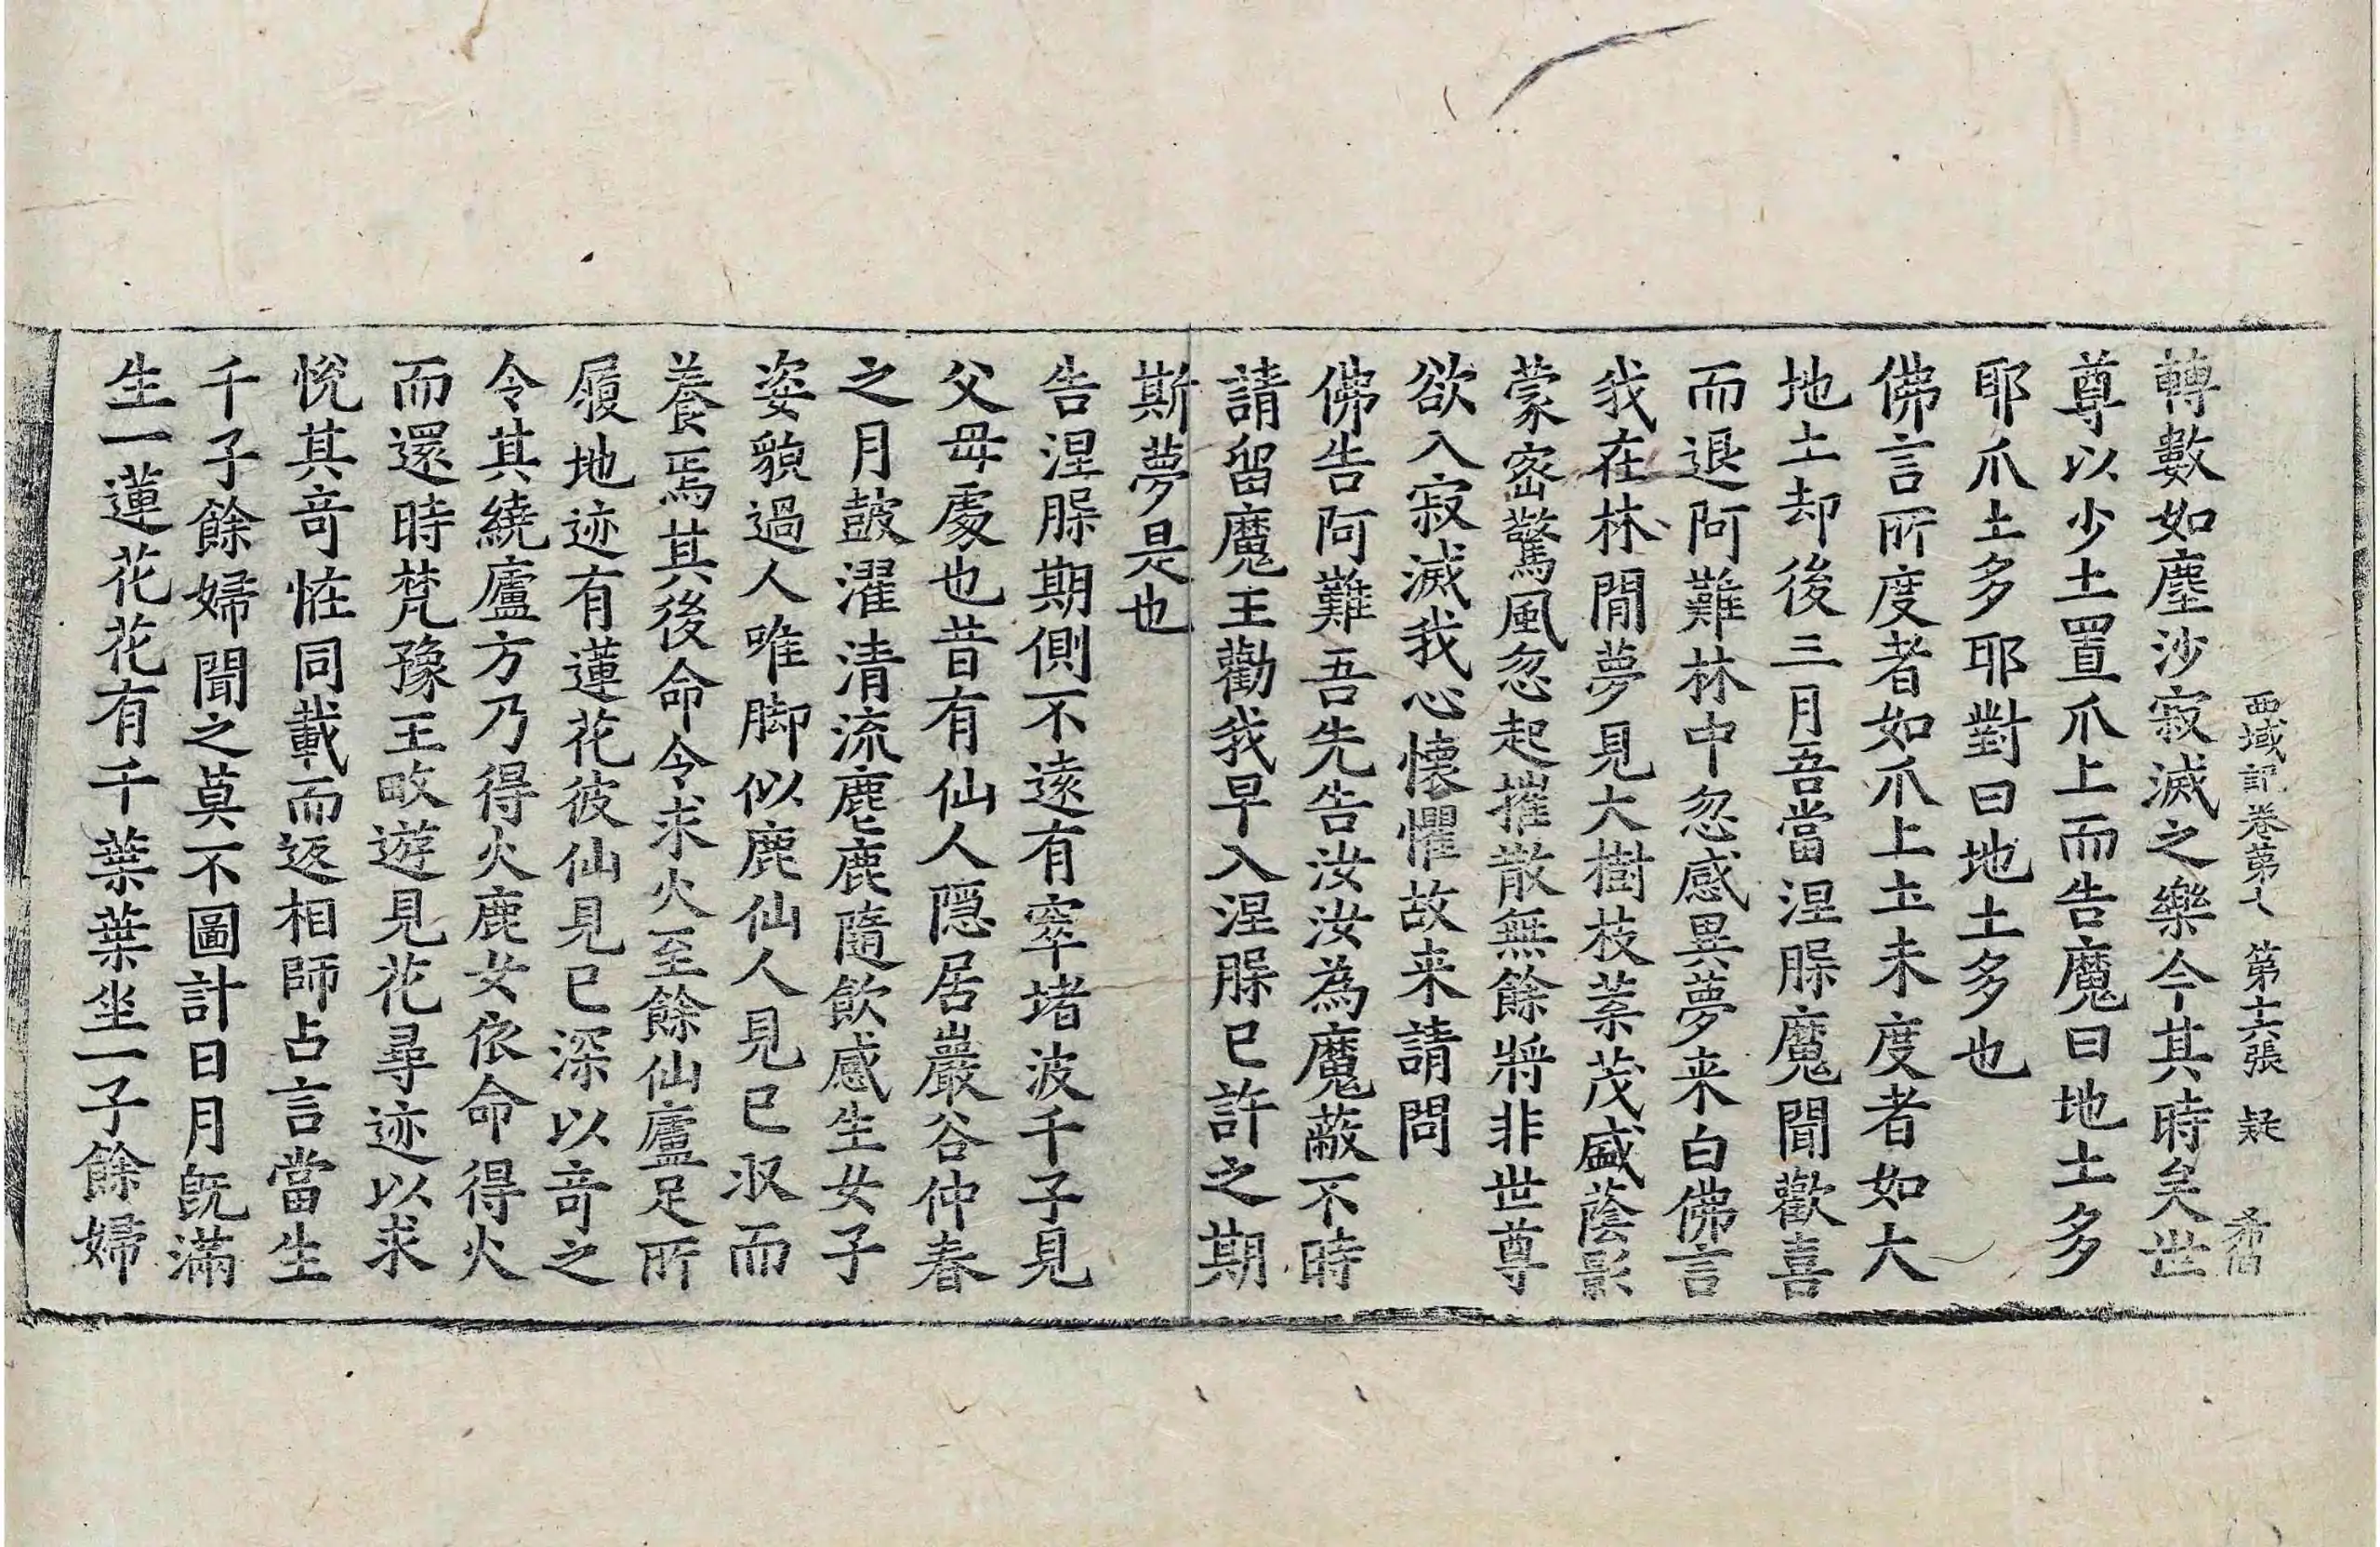 西域記卷第七 第十六張 疑
轉數如塵沙寂滅之樂今其時矣世
尊以少土置爪上而告魔曰地土多
耶爪土多耶對曰地土多也
佛言所度者如爪上土未度者如大
地土却後三月吾當涅脲魔聞歡喜
而退阿難林中忽感異夢来白佛言
我在林間夢見大樹枝葉茂盛蔭影
蒙密驚風忽起摧散無餘將非世尊
欲入寂滅我心懷懼故来請問
佛告阿難吾先告汝汝為魔蔽不時
請留魔王勸我早入涅脲已許之期
斯夢是也
告涅脲期側不遠有窣堵波千子見
父母處也昔有仙人隱居巖谷仲春
之月鼓濯清流麀鹿隨飲感生女子
姿貌過人唯脚似鹿仙人見已収而
養焉其後命令求火至餘仙廬足所
履地迹有蓮花彼仙見已深以竒之
令其繞廬方乃得火鹿女依命得火
而還時梵豫王畋遊見花尋迹以求
悅其竒恠同載而返相師占言當生
千子餘婦聞之莫不圖計日月旣滿
生一蓮花花有千葉葉坐一子餘婦